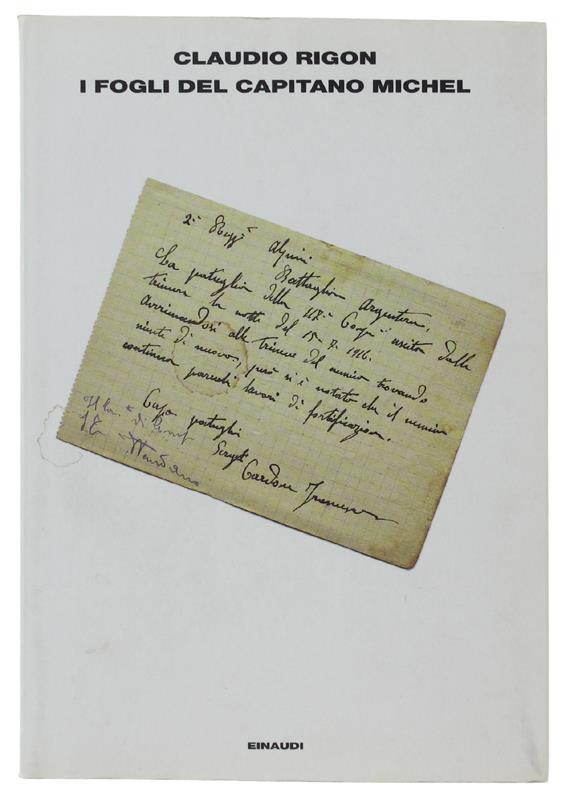 CLAUDIO RIGON
I FOGLI DEL CAPITANO MICHEL
2° Regg° Alpini
Battaglion Argentera.
La pattuglia della 117ª Comp° uscita dalla
trincea la notte del 15-7-1916.
Avvicinandosi alle trincee del nemico trovando
niente di nuovo, però si è notato che il nemico
continua parecchi lavori di fortificazione.
Capo pattuglia
Sergte
Cardone
EINAUDI